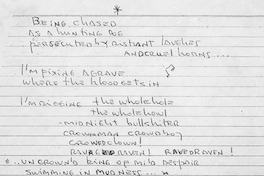 *
BEING CHASED
AS A HUNTING
PERSECUTED BY DISTANT
AND CRUEL HORNS ....
I'M FIXING A GRAVE
WHERE THE BLOOD GETS IN
I'M the whole hole
the whole howl
- MIDNIGHT bullshitter
CROWNMAN CROWNBOY
CROWNEDCLOWN!
RAVEDRAVEN!
UNCROWN'D KING OF MILD DESPAIR
SWIMMING IN MUDNESS...